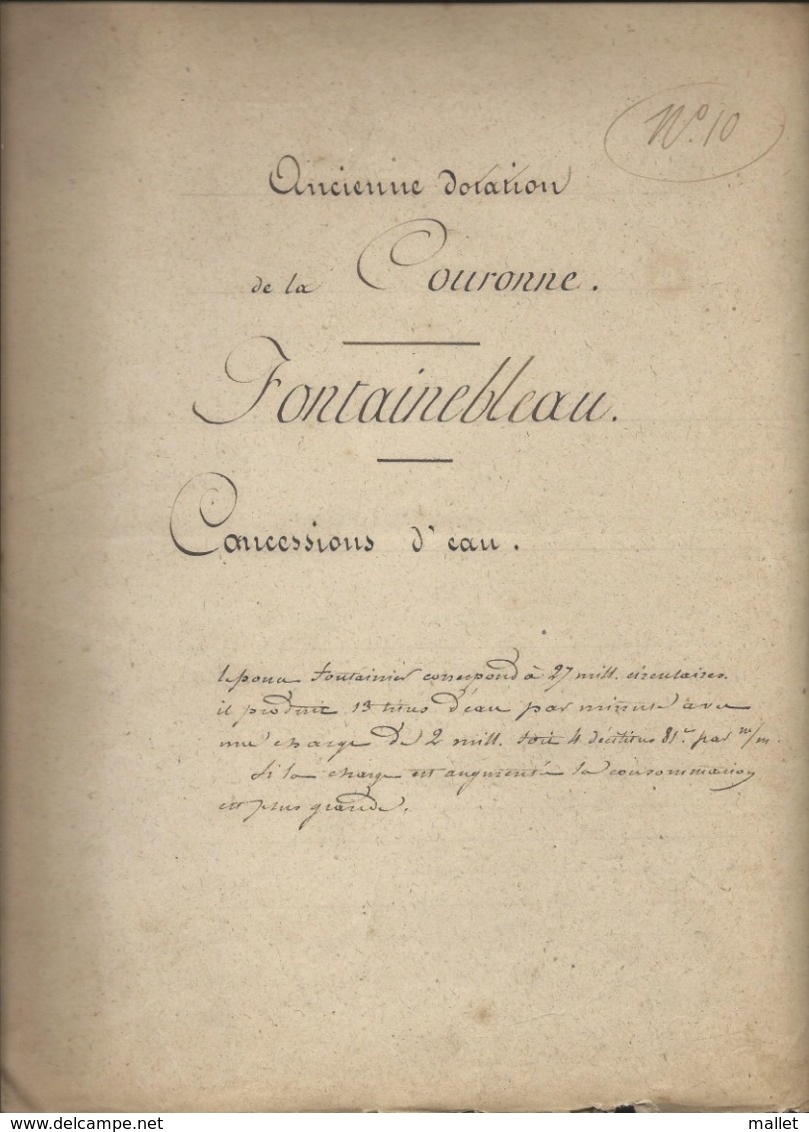 N° 10
Ancienne dotation
de la Couronne.
Fontainebleau.
Concessions d'eau.
le pouce fontainier correspond à 27 mill. circulaires.
il produit 13 litres d'eau par minute avec
une charge de 2 mill. soit 4 décilitres 81c par m/m.
Si la charge est augmentée la consommation
est plus grande.
delcampe.net
mallet